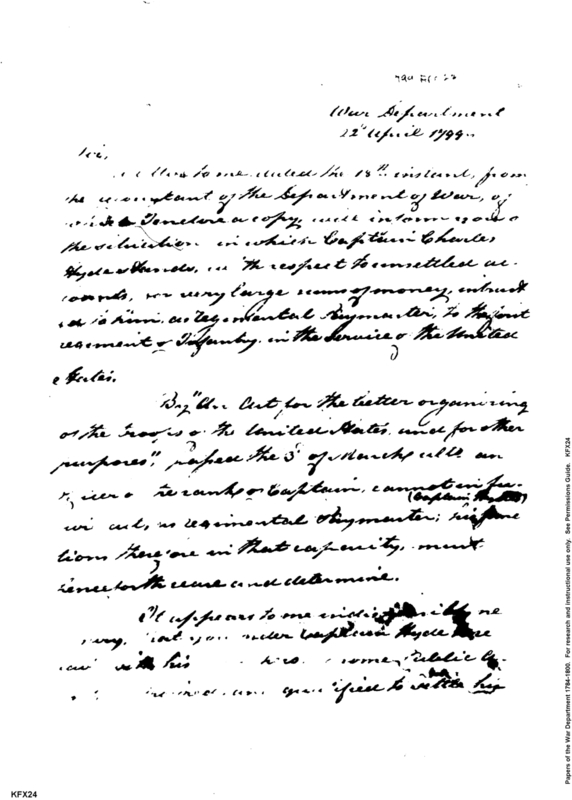 War Department
22d April 1799
Sir,
to me dated the 18th instant, from
the accountant of the Department of War, of
which I enclose a copy, will inform you of
the situation in which Captain Charles
Hyde stands, in respect to unsettled ac-
counts, for very large sums of money, intrust
ed to him, as regimental Paymaster, to the first
regiment of Infantry, in the Service of the United
States.
By "An Act for the better organizing
of the Troops of the United States, and for other
purposes", passed the 3d of March ulto an
officer of the rank of Captain, cannot in fu-
as regimental Paymaster; his func
(Captain Hyde's)
tions therefore in that capacity, must
henceforth cease and determine.
It appears to me indispensibly ne
you order Captain Hyde
with his some Public
qualified to settle his
KFX24
Papers of the War Department 1784-1800. For research and instructional use only. See Permissions Guide. KFX24